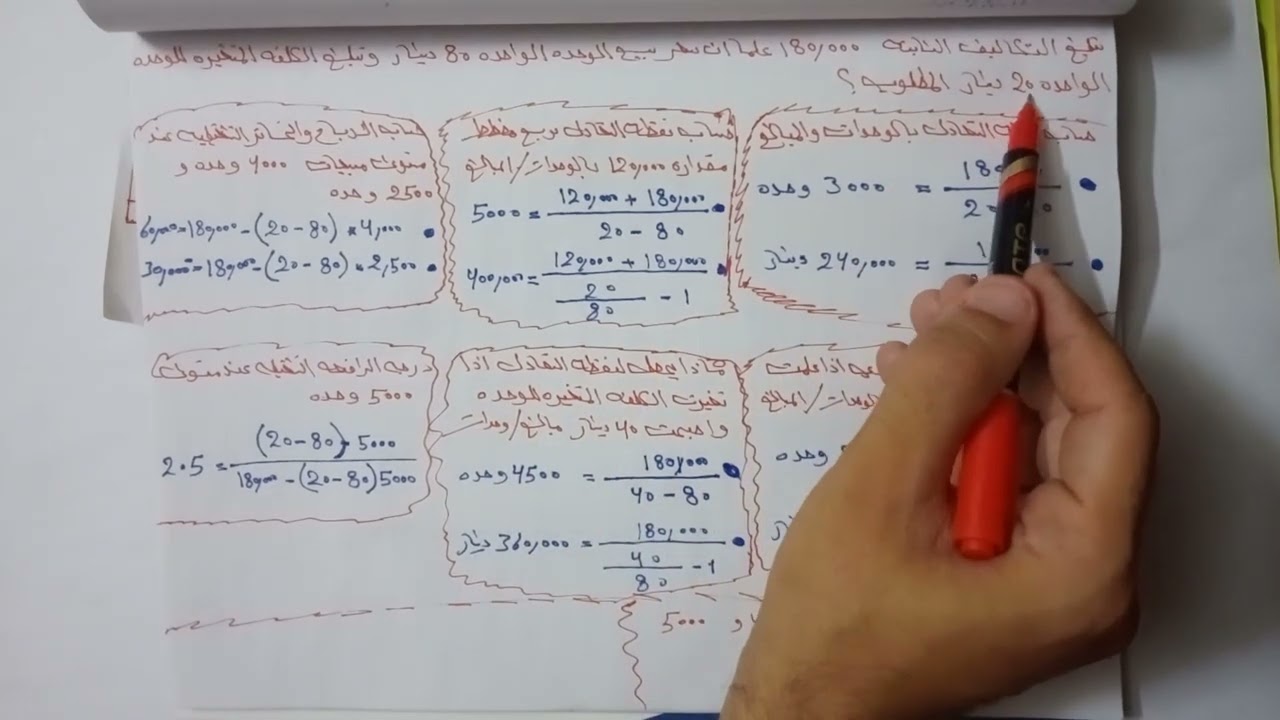 تبلغ التكاليف الثابته 180,000 علما ان سعر بيع الوحده الواحده 80 دينار وتبلغ الكلفه المتغيره للوحده
الواحده 20 دينار المطلوب ؟
حساب التعادل بالوحدات والمبالغ
= 3000 وحده
= 240,000 دينار
حساب نقطه التعادل بربح مخطط
مقداره 120,000 بالوحدات/المبالغ
120,000 + 180,000
5000 =
20 - 80
120,000 + 180,000
400,000 =
20
- 1
80
حساب الارباح والخسائر التشغيليه عند
مستوى مبيعات 4000 وحده و
2500 وحده
60,000 = 180,000 - (20 - 80) * 4,000
30,000 = 180,000 - (20 - 80) * 2,500
اذا علمت
الوحدات/المبالغ
وحده
ماذا يحصل لنقطه التعادل اذا
تغيرت الكلفه المتغيره للوحده
واصبحت 40 دينار مبالغ/وحدات
180,000
= 4500 وحده
40 - 80
180,000
= 360,000 دينار
40
- 1
80
درجه الرافعه التشغيليه عند مستوى
5000 وحده
(20 - 80) * 5000
2.5 =
180,000 - (20 - 80) 5000
و 5000